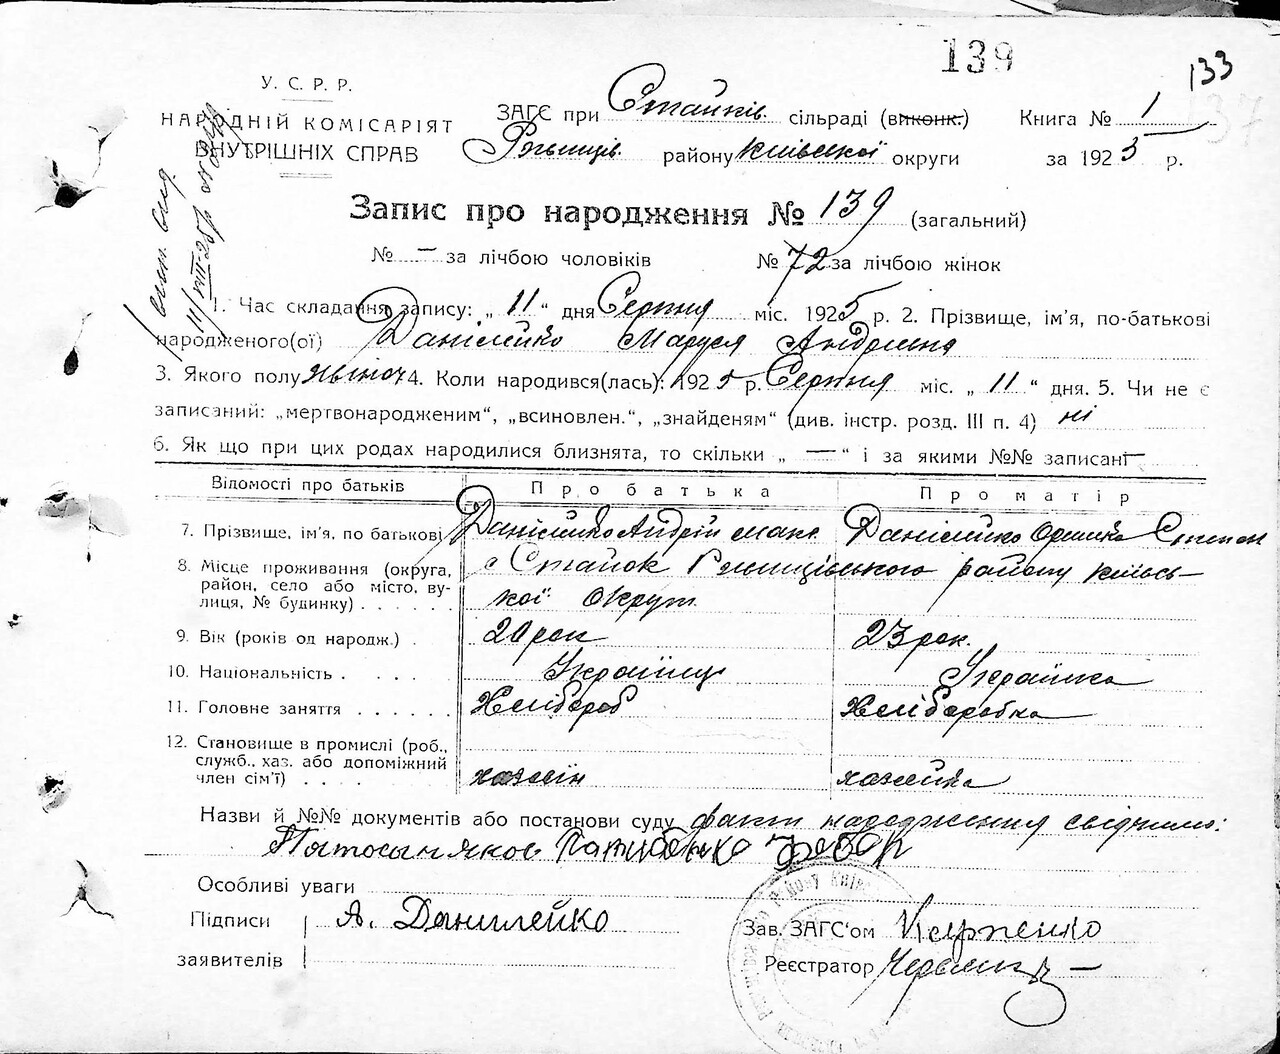 139
133
У. С. Р. Р.
НАРОДНІЙ КОМІСАРІЯТ
ВНУТРІШНІХ СПРАВ
ЗАГС при Стайків. сільраді (виконк.)
Ржищів. району Київської округи
Книга № 1
за 1925 р.
Запис про народження № 139 (загальний)
№ — за лічбою чоловіків № 72 за лічбою жінок
1. Час складання запису: „ 11 “ дня Серпня міс. 1925 р. 2. Прізвище, ім'я, по-батькові
народженого(ої) Данілейко Маруся Андріївна
3. Якого полу жіноч 4. Коли народився(лась): 1925 р. Серпня міс. „ 11 “ дня. 5. Чи не є
записаний: „мертвонародженим“, „всиновлен.“, „знайденям“ (див. інстр. розд. III п. 4) ні
6. Як що при цих родах народилися близнята, то скільки „ — “ і за якими №№ записані —
Відомості про батьків Про батька Про матір
7. Прізвище, ім'я, по батькові Данілейко Андрій Макс. Данілейко Оришка Степан
8. Місце проживання (округа, район, село або місто, вулиця, № будинку) с Стайок Ржищівського району Київської Округи
9. Вік (років од народж.) 20 рок 23 рок.
10. Національність Українць Українка
11. Головне заняття Хлібороб Хліборобка
12. Становище в промислі (роб., служб., хаз. або допоміжний член сім'ї) хазяїн хазяйка
Назви й №№ документів або постанови суду факт народження свідчимо:
Особливі уваги
Підписи А. Данилейко
заявителів
Зав. ЗАГС'ом Карпенко
Реєстратор